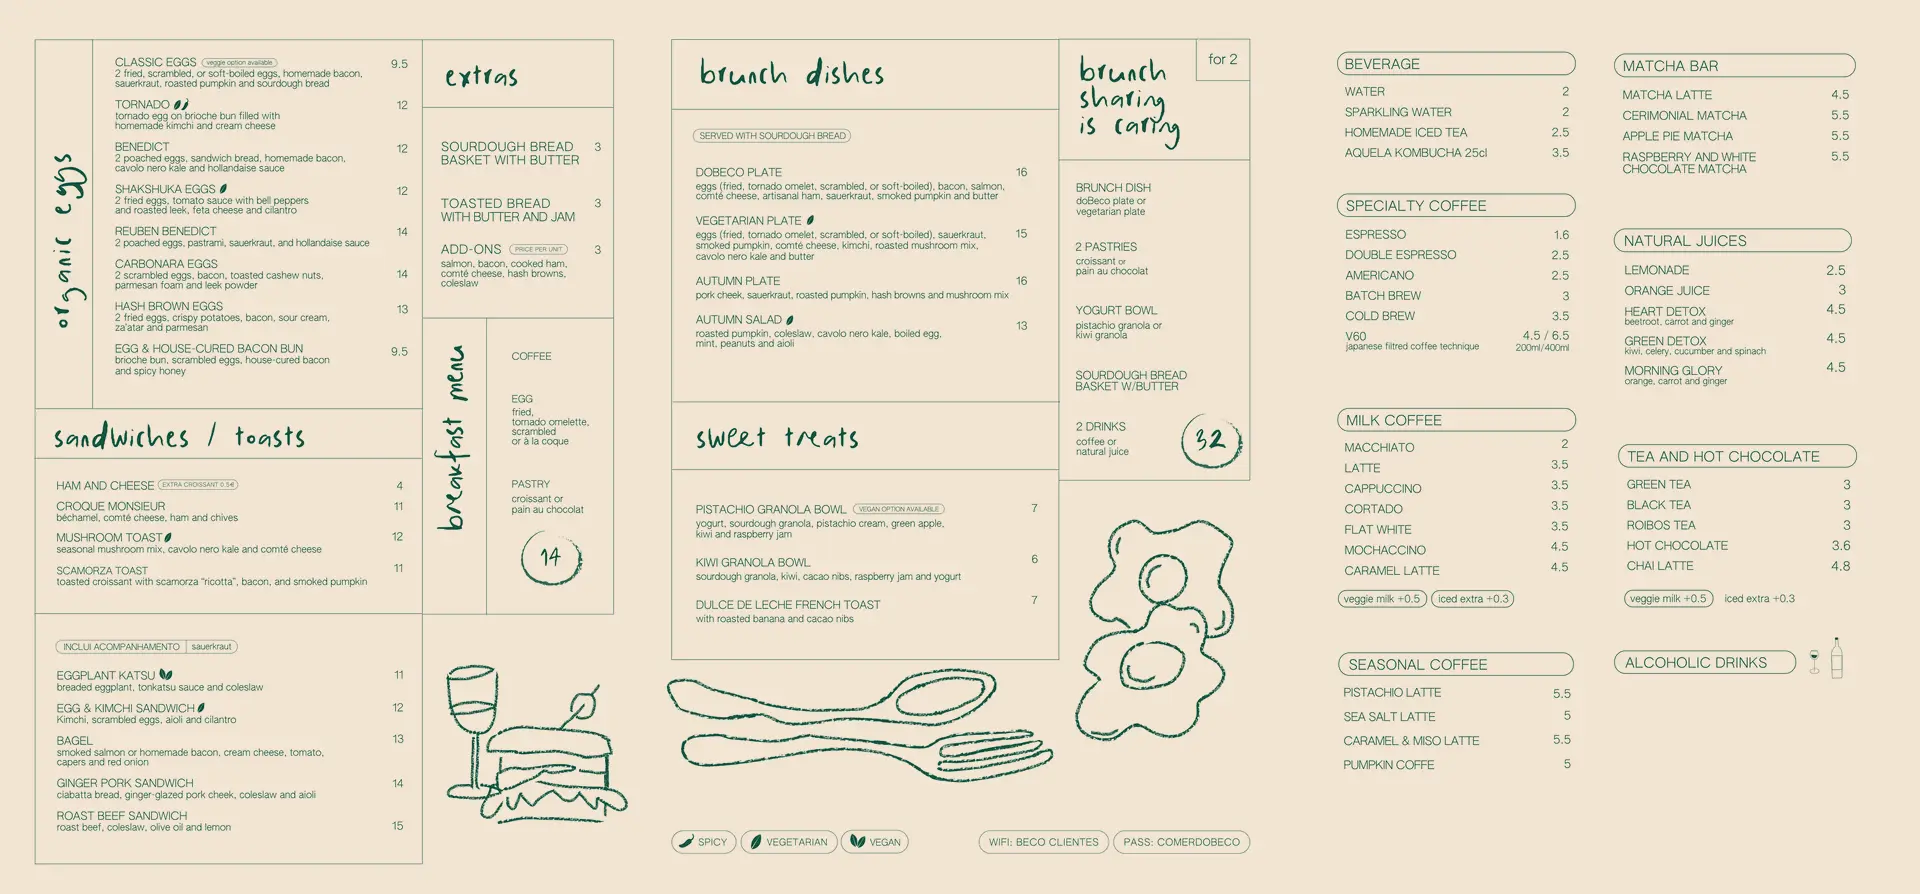 organic eggs
CLASSIC EGGS veggie option available 9.5
2 fried, scrambled, or soft-boiled eggs, homemade bacon,
sauerkraut, roasted pumpkin and sourdough bread
TORNADO 12
tornado egg on brioche bun filled with
homemade kimchi and cream cheese
BENEDICT 12
2 poached eggs, sandwich bread, homemade bacon,
cavolo nero kale and hollandaise sauce
SHAKSHUKA EGGS 12
2 fried eggs, tomato sauce with bell peppers
and roasted leek, feta cheese and cilantro
REUBEN BENEDICT 14
2 poached eggs, pastrami, sauerkraut, and hollandaise sauce
CARBONARA EGGS
2 scrambled eggs, bacon, toasted cashew nuts, 14
parmesan foam and leek powder
HASH BROWN EGGS 13
2 fried eggs, crispy potatoes, bacon, sour cream,
za'atar and parmesan
EGG & HOUSE-CURED BACON BUN 9.5
brioche bun, scrambled eggs, house-cured bacon
and spicy honey
sandwiches / toasts
HAM AND CHEESE EXTRA CROISSANT 0.5€ 4
CROQUE MONSIEUR 11
béchamel, comté cheese, ham and chives
MUSHROOM TOAST 12
seasonal mushroom mix, cavolo nero kale and comté cheese
SCAMORZA TOAST 11
toasted croissant with scamorza “ricotta”, bacon, and smoked pumpkin
INCLUI ACOMPANHAMENTO sauerkraut
EGGPLANT KATSU 11
breaded eggplant, tonkatsu sauce and coleslaw
EGG & KIMCHI SANDWICH 12
Kimchi, scrambled eggs, aioli and cilantro
BAGEL 13
smoked salmon or homemade bacon, cream cheese, tomato,
capers and red onion
GINGER PORK SANDWICH 14
ciabatta bread, ginger-glazed pork cheek, coleslaw and aioli
ROAST BEEF SANDWICH
roast beef, coleslaw, olive oil and lemon 15
extras
SOURDOUGH BREAD 3
BASKET WITH BUTTER
TOASTED BREAD 3
WITH BUTTER AND JAM
ADD-ONS PRICE PER UNIT 3
salmon, bacon, cooked ham,
comté cheese, hash browns,
coleslaw
breakfast menu
COFFEE
EGG
fried,
tornado omelette,
scrambled
or à la coque
PASTRY
croissant or
pain au chocolat
14
brunch dishes
SERVED WITH SOURDOUGH BREAD
DOBECO PLATE 16
eggs (fried, tornado omelet, scrambled, or soft-boiled), bacon, salmon,
comté cheese, artisanal ham, sauerkraut, smoked pumpkin and butter
VEGETARIAN PLATE
eggs (fried, tornado omelet, scrambled, or soft-boiled), sauerkraut, 15
smoked pumpkin, comté cheese, kimchi, roasted mushroom mix,
cavolo nero kale and butter
AUTUMN PLATE 16
pork cheek, sauerkraut, roasted pumpkin, hash browns and mushroom mix
AUTUMN SALAD 13
roasted pumpkin, coleslaw, cavolo nero kale, boiled egg,
mint, peanuts and aioli
sweet treats
PISTACHIO GRANOLA BOWL VEGAN OPTION AVAILABLE 7
yogurt, sourdough granola, pistachio cream, green apple,
kiwi and raspberry jam
KIWI GRANOLA BOWL 6
sourdough granola, kiwi, cacao nibs, raspberry jam and yogurt
DULCE DE LECHE FRENCH TOAST 7
with roasted banana and cacao nibs
brunch
sharing
is caring
for 2
BRUNCH DISH
doBeco plate or
vegetarian plate
2 PASTRIES
croissant or
pain au chocolat
YOGURT BOWL
pistachio granola or
kiwi granola
SOURDOUGH BREAD
BASKET W/BUTTER
2 DRINKS
coffee or
natural juice
32
SPICY
VEGETARIAN
VEGAN
WIFI: BECO CLIENTES
PASS: COMERDOBECO
BEVERAGE
WATER 2
SPARKLING WATER 2
HOMEMADE ICED TEA 2.5
AQUELA KOMBUCHA 25cl 3.5
SPECIALTY COFFEE
ESPRESSO 1.6
DOUBLE ESPRESSO 2.5
AMERICANO 2.5
BATCH BREW 3
COLD BREW 3.5
V60 4.5 / 6.5
japanese filtred coffee technique 200ml/400ml
MILK COFFEE
MACCHIATO 2
LATTE 3.5
CAPPUCCINO 3.5
CORTADO 3.5
FLAT WHITE 3.5
MOCHACCINO 4.5
CARAMEL LATTE 4.5
veggie milk +0.5 iced extra +0.3
SEASONAL COFFEE
PISTACHIO LATTE 5.5
SEA SALT LATTE 5
CARAMEL & MISO LATTE 5.5
PUMPKIN COFFE 5
MATCHA BAR
MATCHA LATTE 4.5
CERIMONIAL MATCHA 5.5
APPLE PIE MATCHA 5.5
RASPBERRY AND WHITE 5.5
CHOCOLATE MATCHA
NATURAL JUICES
LEMONADE 2.5
ORANGE JUICE 3
HEART DETOX 4.5
beetroot, carrot and ginger
GREEN DETOX 4.5
kiwi, celery, cucumber and spinach
MORNING GLORY 4.5
orange, carrot and ginger
TEA AND HOT CHOCOLATE
GREEN TEA 3
BLACK TEA 3
ROIBOS TEA 3
HOT CHOCOLATE 3.6
CHAI LATTE 4.8
veggie milk +0.5 iced extra +0.3
ALCOHOLIC DRINKS